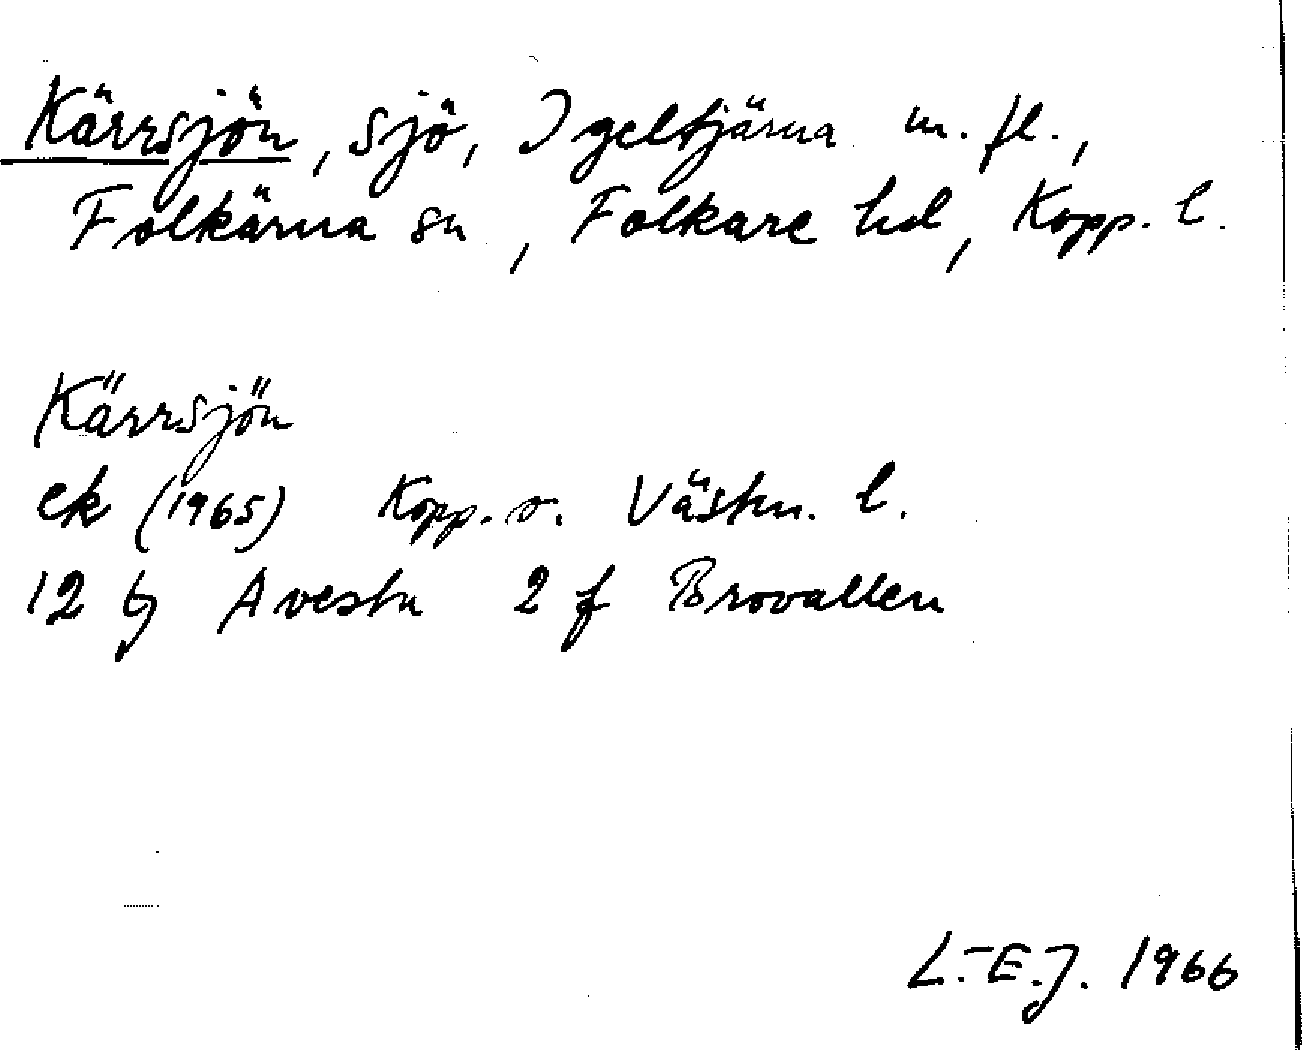 Kärrsjön, sjö, Igeltjärna m. fl.,
Folkärna sn, Folkare hd, Kopp. l.
Kärrsjön
ek (1965) Kopp. o. Västm. l.
12 G Avesta 2 f Brovallen
L.-E.J. 1966